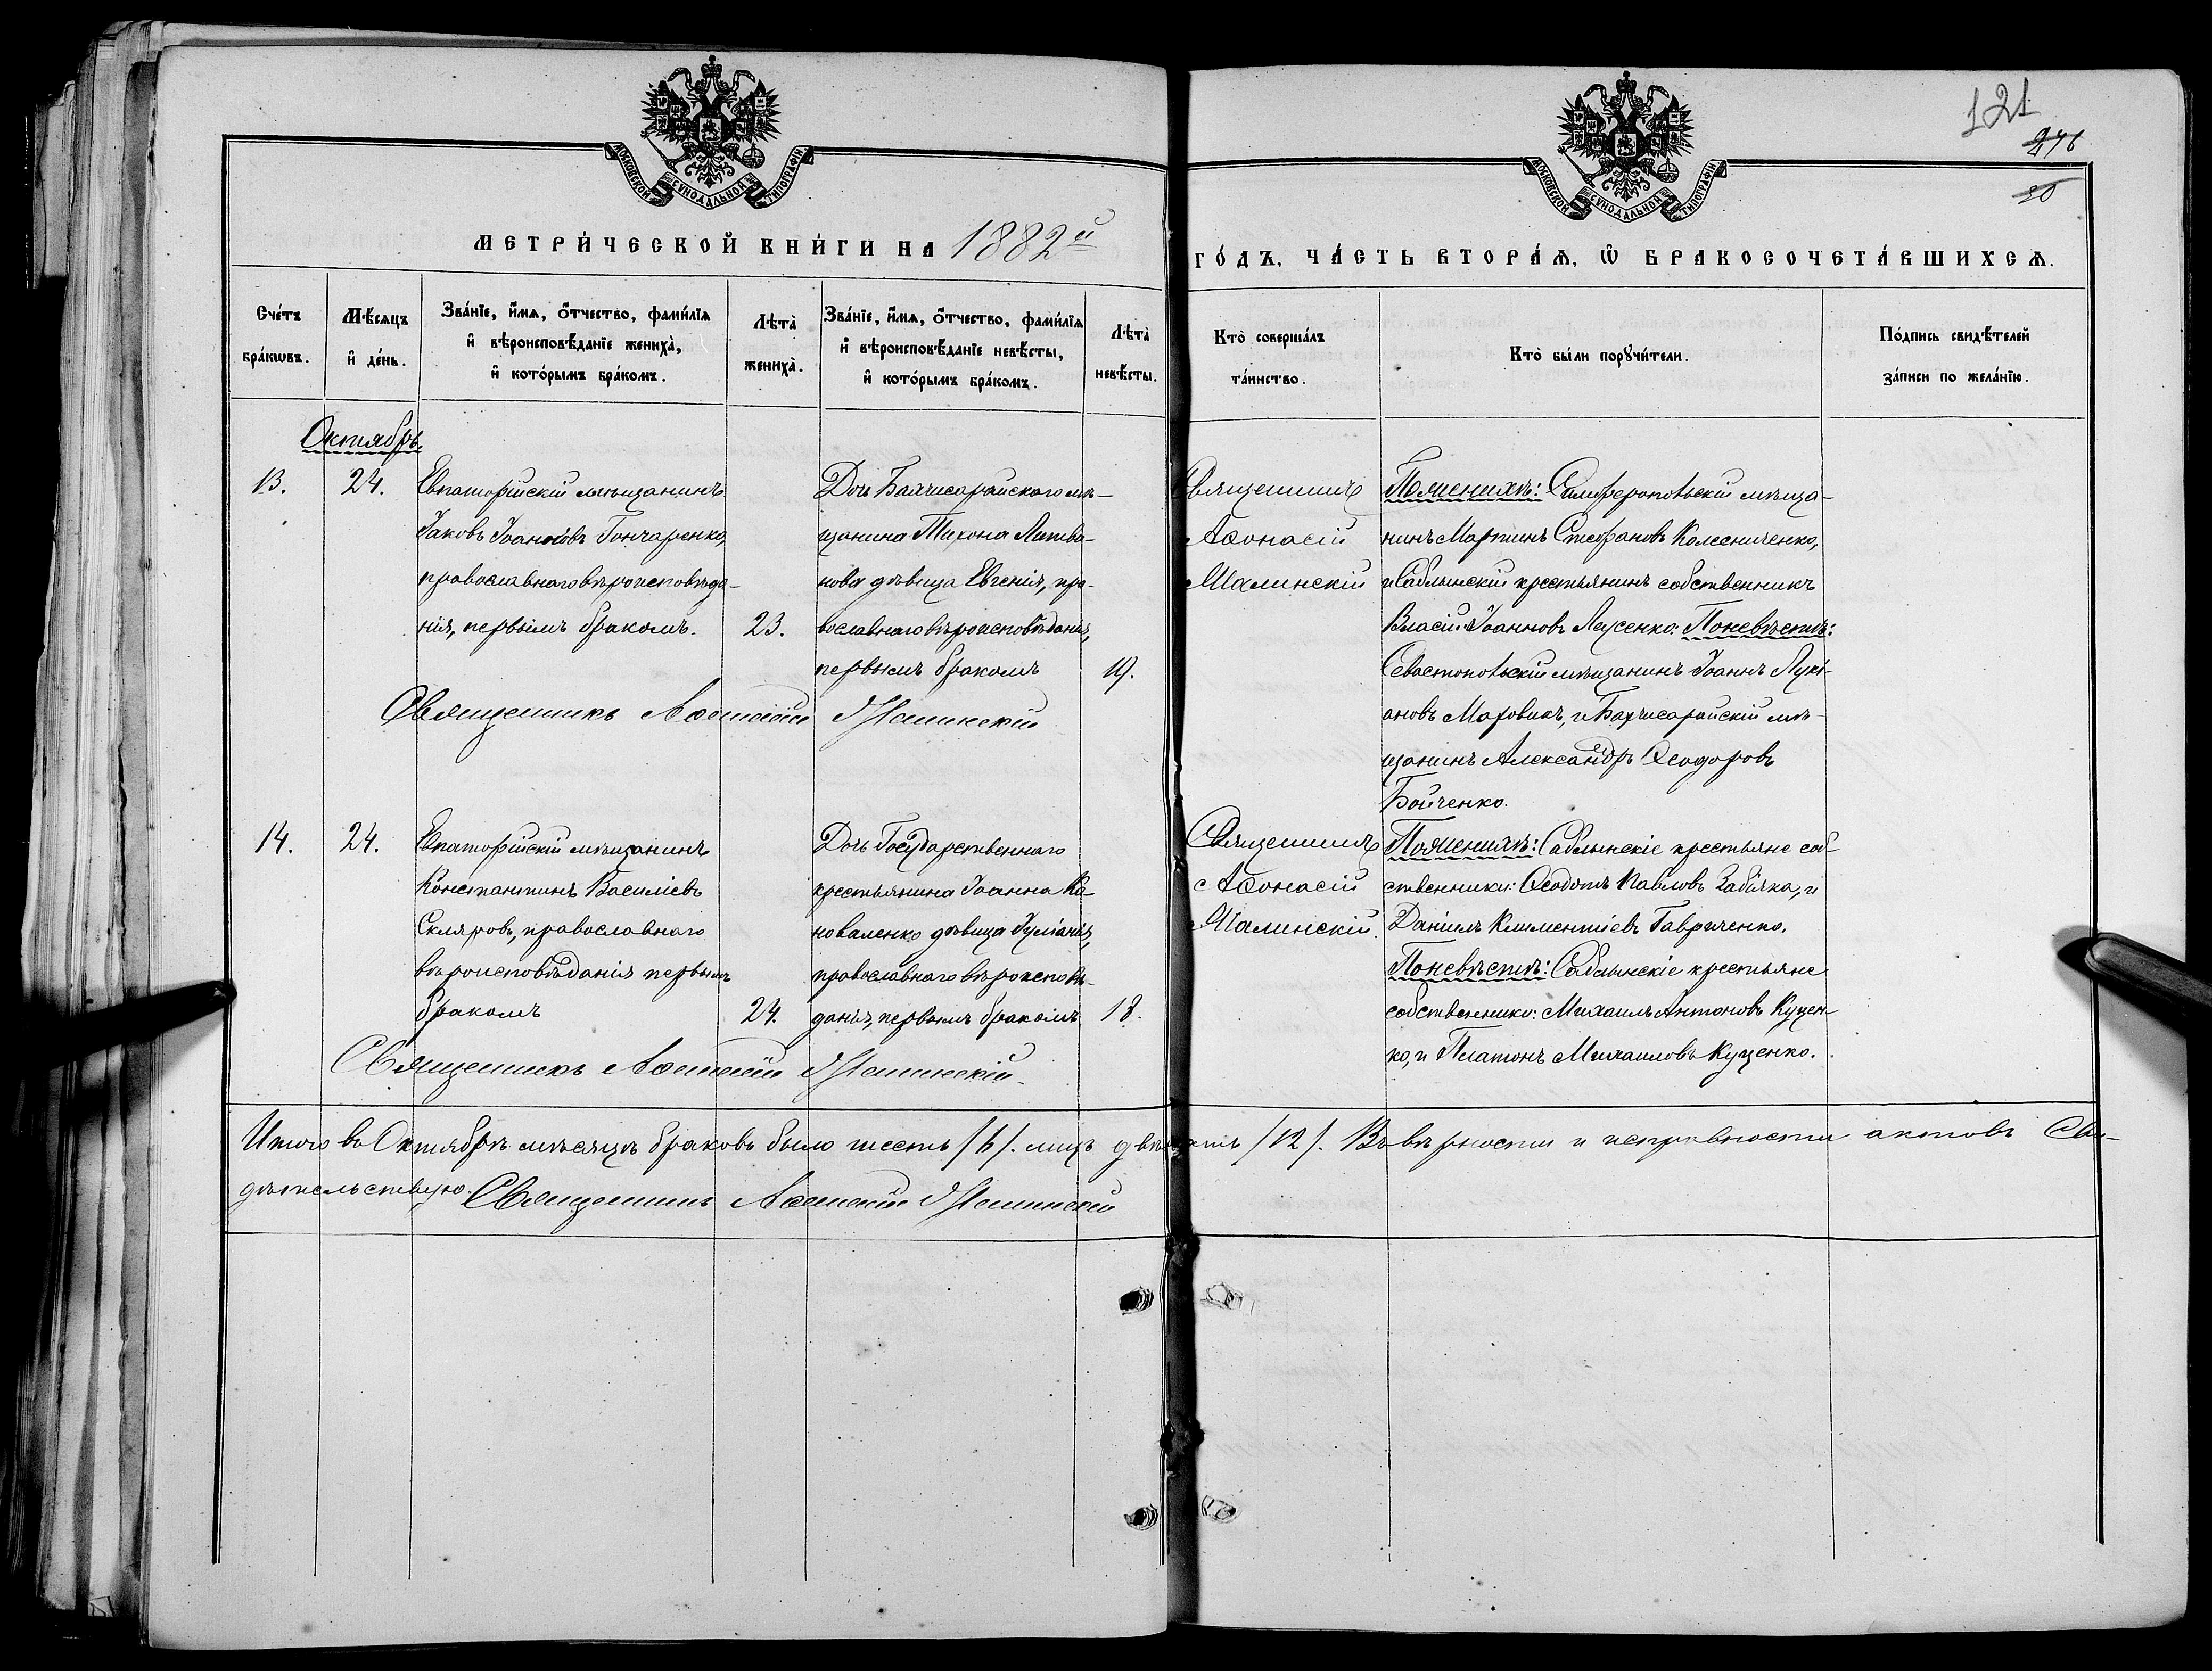 121
276
20
МОСКОВСКОЙ СѴНОДАЛЬНОЙ ТИПОГРАФІИ
МОСКОВСКОЙ СѴНОДАЛЬНОЙ ТИПОГРАФІИ
МЕТРИ́ЧЕСКОЙ КНИ́ГИ НА 1882й
ГО́ДЪ, ЧА́СТЬ ВТОРА́Ѧ, Ѽ БРАКОСОЧЕТА́ВШИХСѦ.
Сче́тъ бра́кѡвъ.
Мѣ́сяцъ и҆ де́нь.
Зва́нїе, и҆́мя, ѻ҆́тчество, фами́лїя и҆ вѣроисповѣ́данїе жениха̀, и҆ кото́рымъ бра́комъ.
Лѣта̀ жениха̀.
Зва́нїе, и҆́мя, ѻ҆́тчество, фами́лїя и҆ вѣроисповѣ́данїе невѣ́сты, и҆ кото́рымъ бра́комъ.
Лѣта̀ невѣ́сты.
Кто̀ соверша́лъ та́инство.
Кто̀ бы́ли порꙋчи́тели.
По́дпись свидѣ́телей за́писи по жела́нїю.
Октябрь.
13.
24.
Евпаторійскій мѣщанинъ
Іаковъ Іоанновъ Гончаренко,
православнаго вѣроисповѣда-
нія, первымъ бракомъ.
23.
Дочь Бахчисарайскаго мѣ-
щанина Тихона Литви-
нова дѣвица Евгенія, пра-
вославнаго вѣроисповѣданія,
первымъ бракомъ
19.
Священникъ
Аѳонасій
Шалинскій
По женихѣ: Симферопольскій мѣща-
нинъ Мартинъ Стефановъ Колесниченко,
и Саблынскій крестьянинъ собственникъ
Власій Іоанновъ Лысенко. По невѣстѣ:
Севастопольскій мѣщанинъ Іоаннъ Лукі-
ановъ Маровикъ, и Бахчисарайскій мѣ-
щанинъ Александръ Ѳеодоровъ
Бойченко.
Священникъ Аѳонасій Шалинскій
14.
24.
Евпаторійскій мѣщанинъ
Константинъ Василіевъ
Скляровъ, православнаго
вѣроисповѣданія первымъ
бракомъ
24.
Дочь Государственнаго
крестьянина Іоанна Ко-
новаленко дѣвица Іуліанія,
православнаго вѣроисповѣ-
данія, первымъ бракомъ
18.
Священникъ
Аѳонасій
Шалинскій.
По женихѣ: Саблынскіе крестьяне соб-
ственники: Ѳеодотъ Павловъ Забіяка, и
Даніилъ Климентіевъ Гавриченко.
По невѣстѣ: Саблынскіе крестьяне
собственники: Михаилъ Антоновъ Куцен-
ко, и Платонъ Михаиловъ Куценко.
Священникъ Аѳонасій Шалинскій
Итого въ Октябрѣ мѣсяцѣ браковъ было шесть /6/. лицъ двѣнадцать /12/. Въ вѣрности и исправности актовъ Сви-
дѣтельствую. Священникъ Аѳонасій Шалинскій